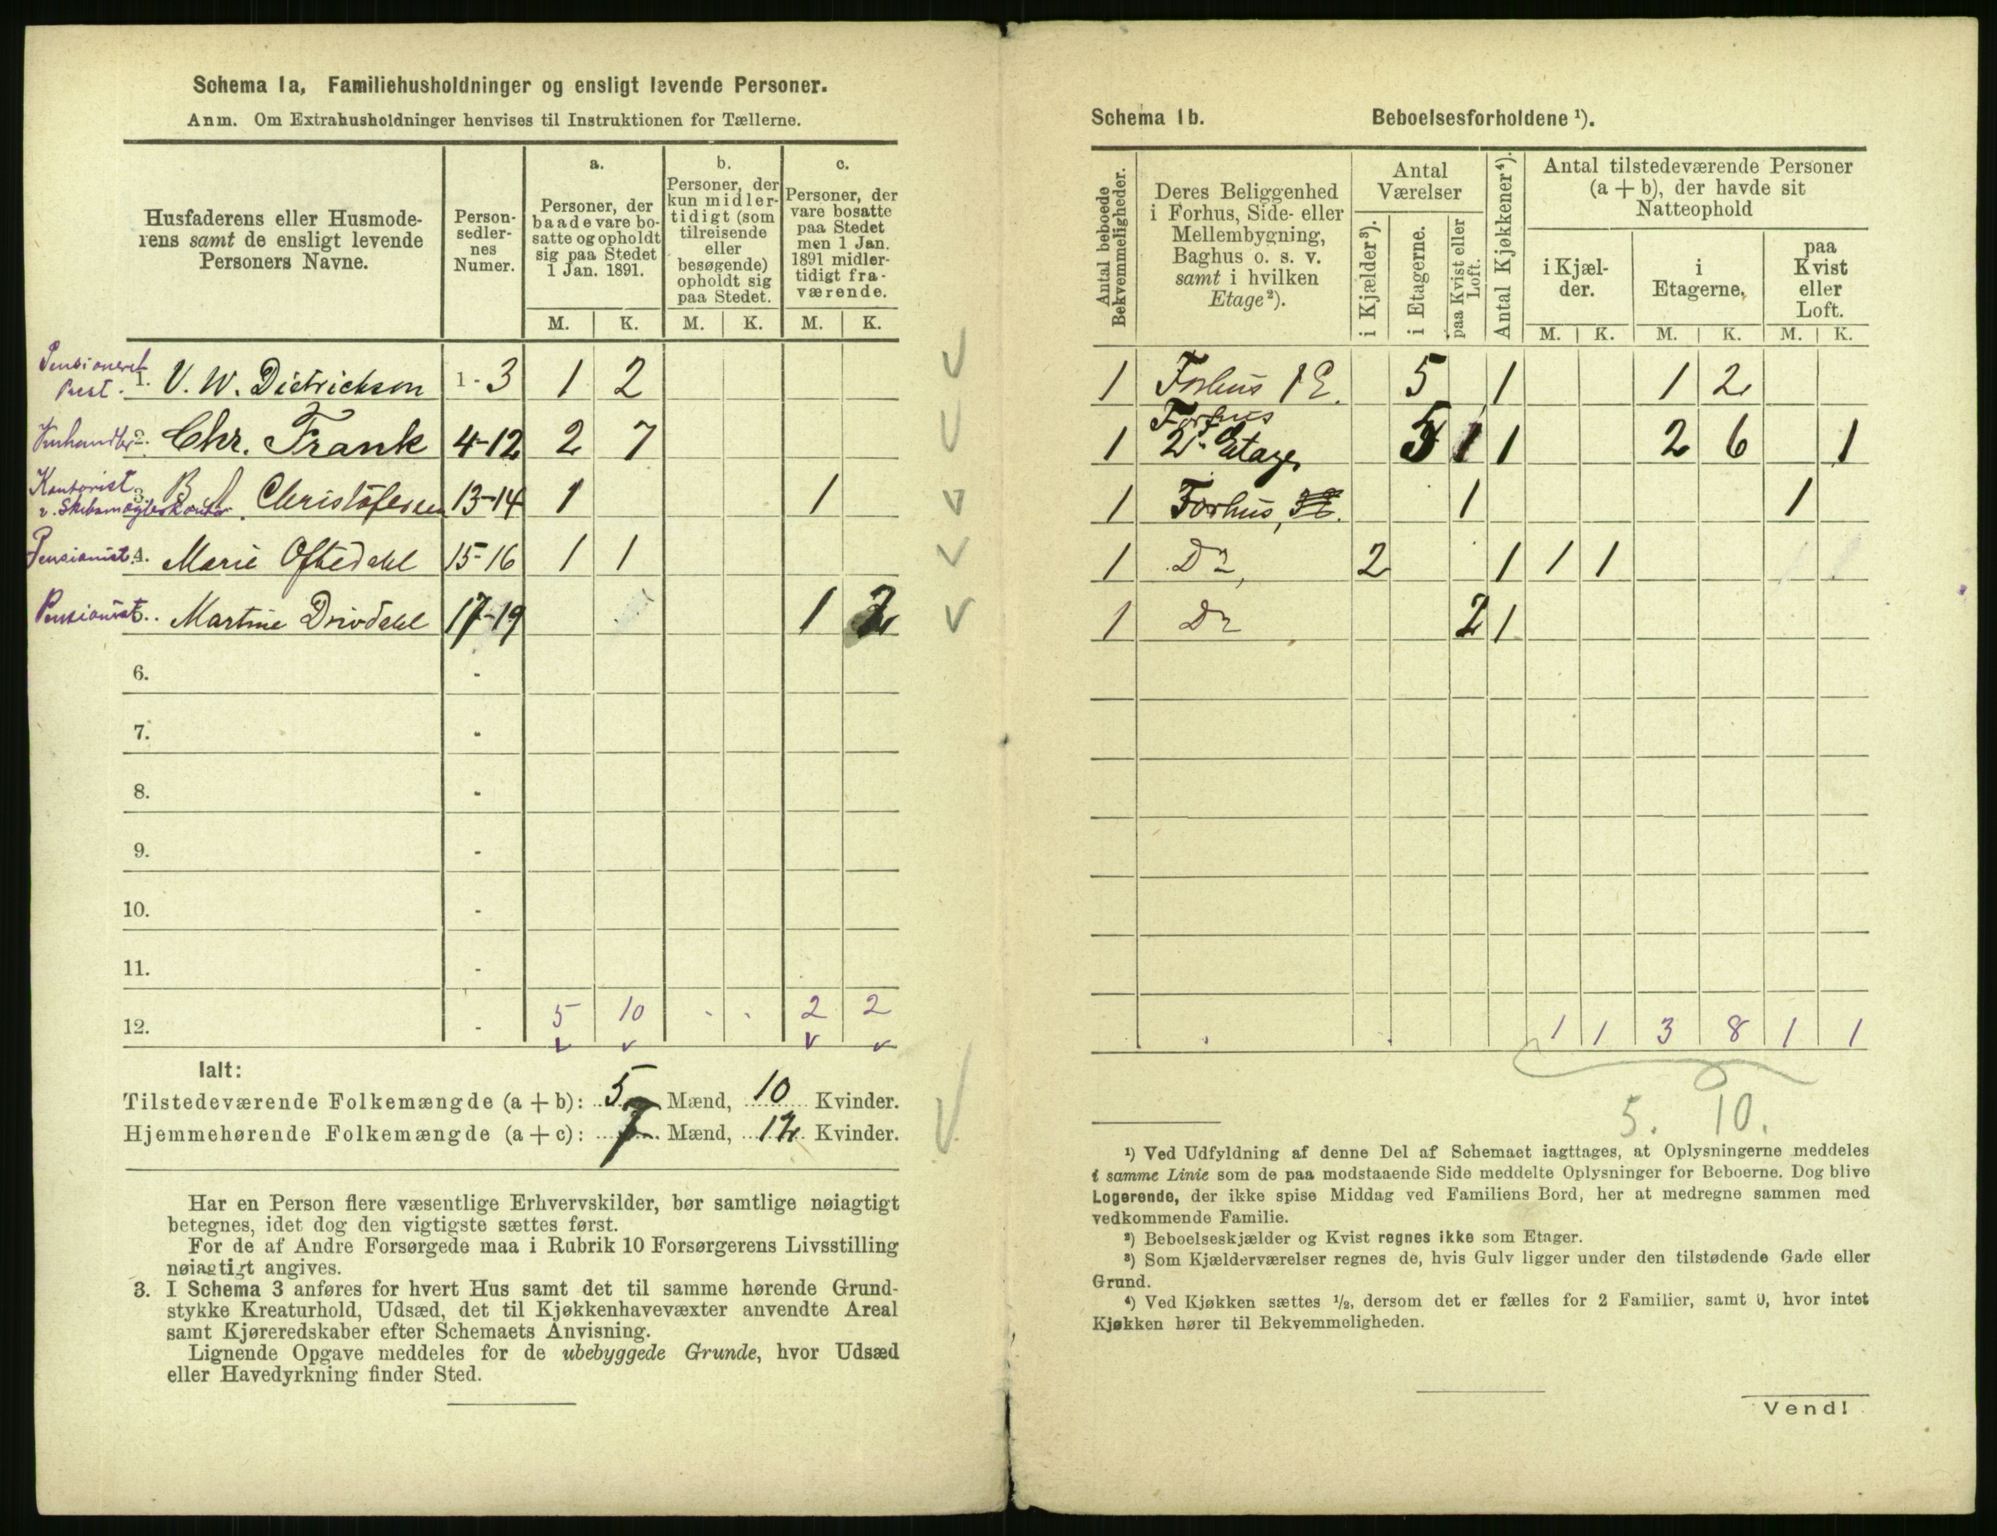 Schema 1a, Familiehusholdninger og ensligt levende Personer.
Anm. Om Extrahusholdninger henvises til Instruktionen for Tællerne.
Husfaderens eller Husmode-
rens samt de ensligt levende
Personers Navne.
Person-
sedler-
nes
Numer.
a.
Personer, der
baade vare bo-
satte og opholdt
sig paa Stedet
1 Jan. 1891.
b.
Personer, der
kun midler-
tidigt (som
tilreisende
eller
besøgende)
opholdt sig
paa Stedet.
c.
Personer, der
vare bosatte
paa Stedet
men 1 Jan.
1891 midler-
tidigt fra-
værende.
M. K. M. K. M. K.
Pensioneret
Prest. 1. V. W. Dietrichson 1-3 1 2
Vinhandler 2. Chr. Frank 4-12 2 7
Kontorist
v. Skibsmæglerkontor 3. B A Christofersen 13-14 1 1
Pensionist 4. Marie Oftedahl 15-16 1 1
Pensionist 5. Martine Drivdahl 17-19 1 2
6. -
7. -
8. -
9. -
10. -
11. -
12. - 5 10 . . 2 2
Ialt:
Tilstedeværende Folkemængde (a + b): 5 Mænd, 10 Kvinder.
Hjemmehørende Folkemængde (a + c): 7 Mænd, 12 Kvinder.
Har en Person flere væsentlige Erhvervskilder, bør samtlige nøiagtigt
betegnes, idet dog den vigtigste sættes først.
For de af Andre Forsørgede maa i Rubrik 10 Forsørgerens Livsstilling
nøiagtigt angives.
3. I Schema 3 anføres for hvert Hus samt det til samme hørende Grund-
stykke Kreaturhold, Udsæd, det til Kjøkkenhavevæxter anvendte Areal
samt Kjøreredskaber efter Schemaets Anvisning.
Lignende Opgave meddeles for de ubebyggede Grunde, hvor Udsæd
eller Havedyrkning finder Sted.
Schema 1b. Beboelsesforholdene ¹).
Antal beboede
Bekvemmeligheder.
Deres Beliggenhed
i Forhus, Side- eller
Mellembygning,
Baghus o. s. v.
samt i hvilken
Etage²).
Antal
Værelser
i Kjælder³).
i Etagerne.
paa Kvist eller
Loft.
Antal Kjøkkener⁴).
Antal tilstedeværende Personer
(a + b), der havde sit
Natteophold
i Kjæl-
der.
i
Etagerne,
paa
Kvist
eller
Loft.
M. K. M. K. M. K.
1 Forhus 1 E. 5 1 1 2
1 Forhus
2den Etage 5 1 1 2 6 1
1 Forhus, 1 1
1 Do, 2 1 1 1
1 Do 2 1
1 1 3 8 1 1
5. 10.
¹) Ved Udfyldning af denne Del af Schemaet iagttages, at Oplysningerne meddeles
i samme Linie som de paa modstaaende Side meddelte Oplysninger for Beboerne. Dog blive
Logerende, der ikke spise Middag ved Familiens Bord, her at medregne sammen med
vedkommende Familie.
²) Beboelseskjælder og Kvist regnes ikke som Etager.
³) Som Kjælderværelser regnes de, hvis Gulv ligger under den tilstødende Gade eller
Grund.
⁴) Ved Kjøkken sættes ½, dersom det er fælles for 2 Familier, samt 0, hvor intet
Kjøkken hører til Bekvemmeligheden.
Vend!